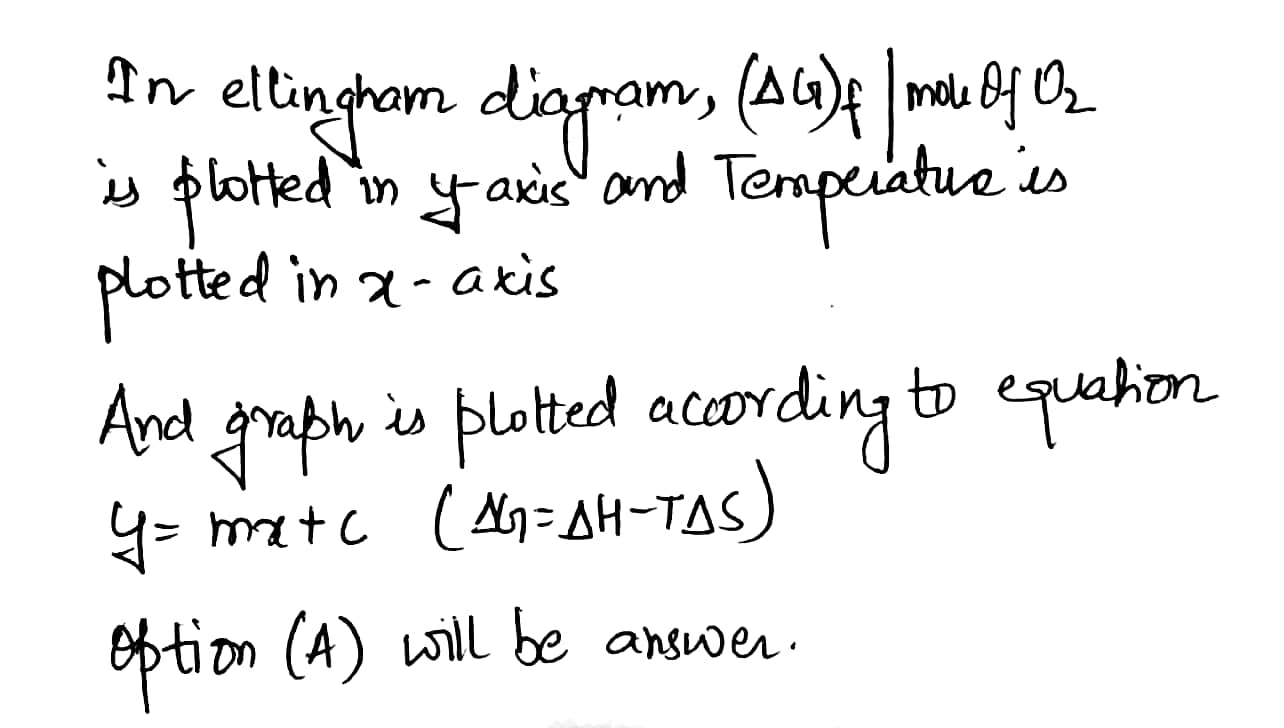 In ellingham diagram, (ΔG)f | mole Of O₂
is plotted in y-axis and Temperature is
plotted in x - axis
And graph is plotted according to equation
y = mx + c ( ΔG = ΔH - TΔS )
Option (A) will be answer.